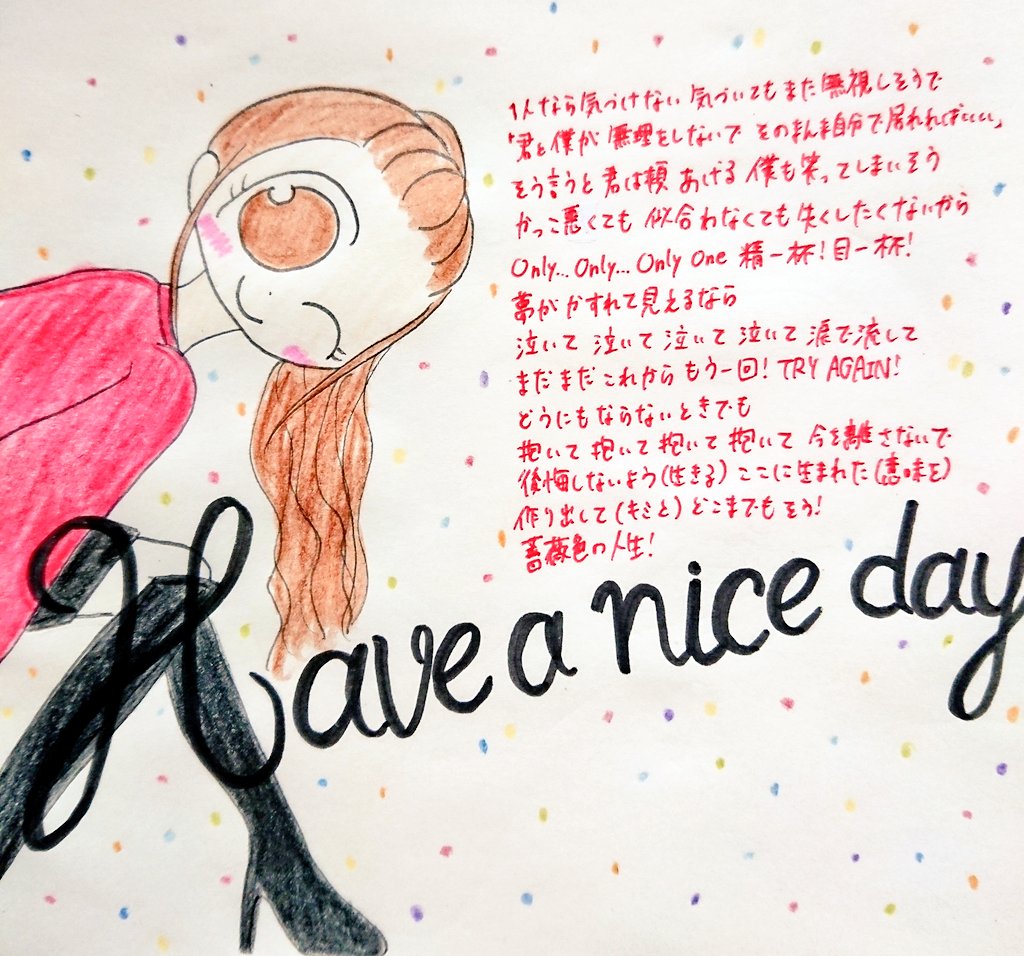 1人なら気づけない 気づいてもまた無視しそうで
「君と僕が 無理をしないで そのまんま自分で居れればいい」
そう言うと 君は頬 あげる 僕も笑ってしまいそう
かっこ悪くても 似合わなくても 失くしたくないから
Only… Only… Only One 精一杯！目一杯！
夢がかすれて見えるなら
泣いて 泣いて 泣いて 泣いて 涙で流して
まだまだこれから もう一回！TRY AGAIN！
どうにもならないときでも
抱いて 抱いて 抱いて 抱いて 今を離さないで
後悔しないよう（生きる）ここに生まれた（意味を）
作り出して（キミと）どこまでもそう！
薔薇色の人生！
Have a nice day